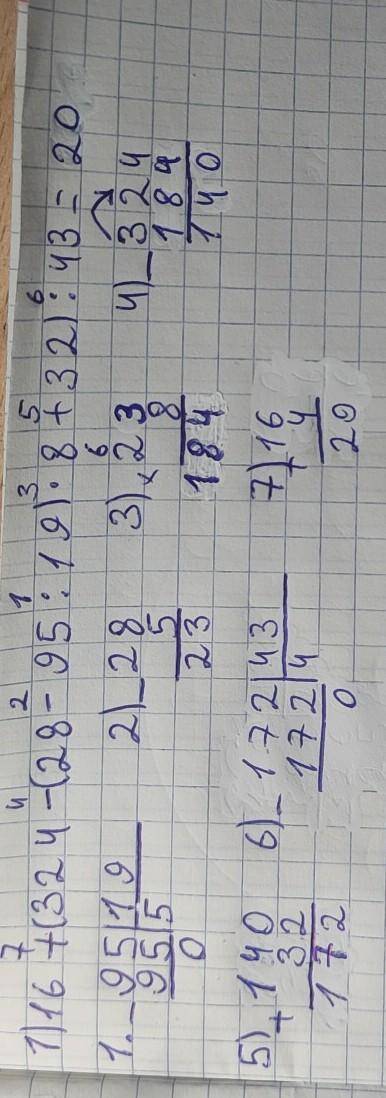 7 4 2 1 3 5 6
1) 16 + (324 - (28 - 95 : 19) · 8 + 32) : 43 = 20
1. - 95 | 19   2) - 28   3) × 23   4) - 324
95 | 5   5   8   184
0   23   184   140
5) + 140   6) - 172 | 43   7) + 16
32   172 | 4   4
172   0   20